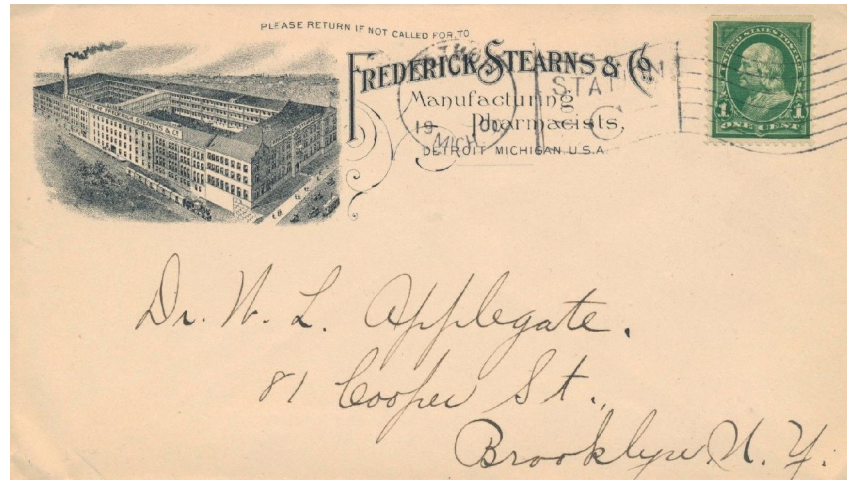 PLEASE RETURN IF NOT CALLED FOR, TO
FREDERICK STEARNS & CO.
Manufacturing
Pharmacists,
DETROIT MICHIGAN U.S.A.
STATION
C
19
MICH
UNITED STATES POSTAGE
1 1
ONE CENT
Dr. W. L. Applegate.
81 Cooper St.,
Brooklyn N. Y.